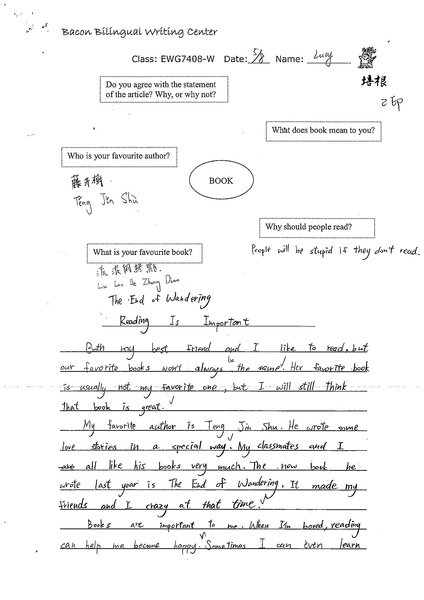 Bacon Bilingual Writing Center
Class: EWG7408-W Date: 5/8 Name: Lucy
培根
Do you agree with the statement
of the article? Why, or why not?
What does book mean to you?
Who is your favourite author?
BOOK
藤井樹
Téng Jǐn Shù
Why should people read?
People will be stupid if they don't read.
What is your favourite book?
流浪的終點
Liu Lan De Zhong Dian
The End of Wandering
Reading Is Important
Both my best friend and I like to read, but
our favorite books won't always be the same. Her favorite book
is usually not my favorite one, but I will still think
that book is great.
My favorite author is Teng Jin Shu. He wrote some
love stories in a special way. My classmates and I
all like his books very much. The new book he
wrote last year is The End of Wandering. It made my
friends and I crazy at that time.
Books are important to me. When I'm bored, reading
can help me become happy. Sometimes I can even learn